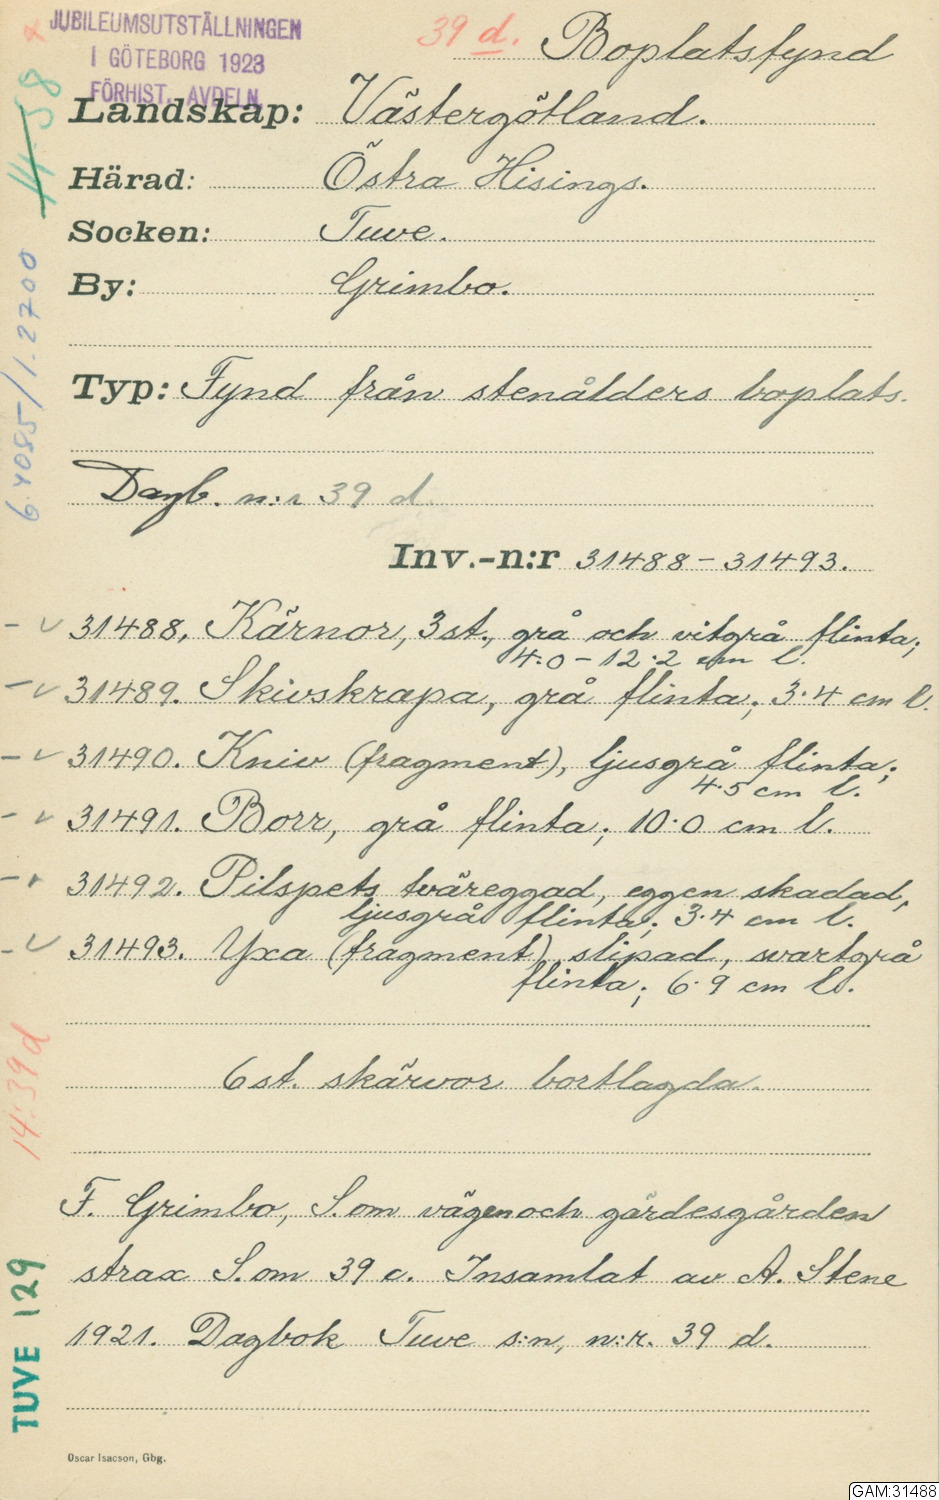 JUBILEUMSUTSTÄLLNINGEN
I GÖTEBORG 1923
FÖRHIST. AVDELN.
39 d. Boplatsfynd
Landskap: Västergötland.
Härad: Östra Hisings.
Socken: Tuve.
By: Grimbo.
Typ: Fynd från stenålders boplats.
Dagb. n:r 39 d
Inv.-n:r 31488-31493.
31488. Kärnor, 3 st., grå och vitgrå flinta;
4.0-12.2 cm l.
31489. Skivskrapa, grå flinta; 3.4 cm l.
31490. Kniv (fragment), ljusgrå flinta;
4.5 cm l.
31491. Borr, grå flinta; 10.0 cm l.
31492. Pilspets tväreggad, eggen skadad,
ljusgrå flinta; 3.4 cm l.
31493. Yxa (fragment) slipad, svartgrå
flinta; 6.9 cm l.
6 st. skärvor bortlagda.
F. Grimbo, S. om vägen och gärdesgården
strax S. om 39 c. Insamlat av A. Stene
1921. Dagbok Tuve s:n, n:r. 39 d.
Oscar Isacson, Gbg.
14:39 d
TUVE 129
6.4085/1.2700
GAM:31488